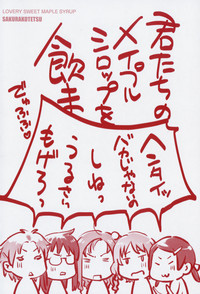 LOVERY SWEET MAPLE SYRUP
SAKURAKOTETSU
君たちの
メイプル
シロップを
飲ま
でゅふふ♡
ヘンタイッ
バカじゃなの
しねっ
うるさい
もげろっ